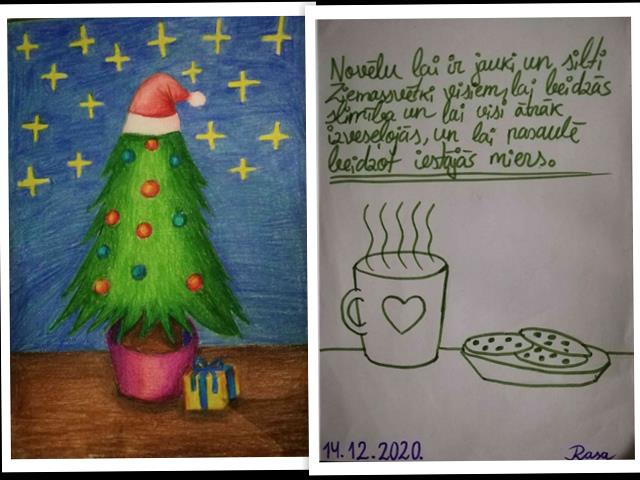 Novēlu lai ir jauki un silti
Ziemassvētki visiem, lai beidzās
slimība un lai visi ātrāk
izveseļojās, un lai pasaulē
beidzot iestājās miers.
14.12.2020.
Rasa